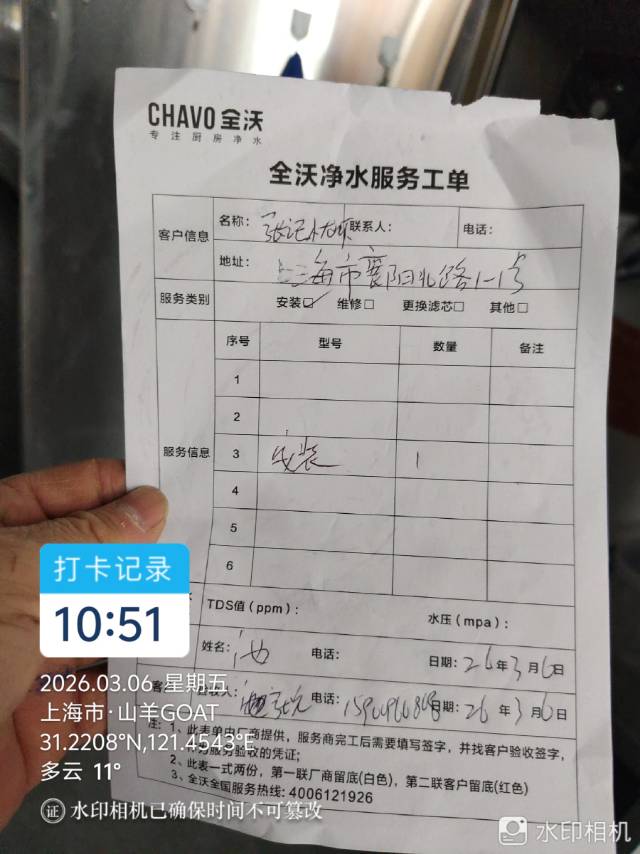 CHAVO 全沃
专注厨房净水
全沃净水服务工单
客户信息 名称： 联系人： 电话：
地址：上海市襄阳北路1-1号
服务类别 安装☑ 维修□ 更换滤芯□ 其他□
服务信息 序号 型号 数量 备注
1
2
3 安装 1
4
5
6
TDS值（ppm）： 水压（mpa）：
姓名： 电话： 日期：26年3月6日
电话： 日期：26年3月6日
注：1、此表单由厂商提供，服务商完工后需要填写签字，并找客户验收签字，
作为服务验收的凭证；
2、此表一式两份，第一联厂商留底(白色)，第二联客户留底(红色)
3、全沃全国服务热线：4006121926
打卡记录
10:51
2026.03.06 星期五
上海市·山羊GOAT
31.2208°N,121.4543°E
多云 11°
证 水印相机已确保时间不可篡改
水印相机